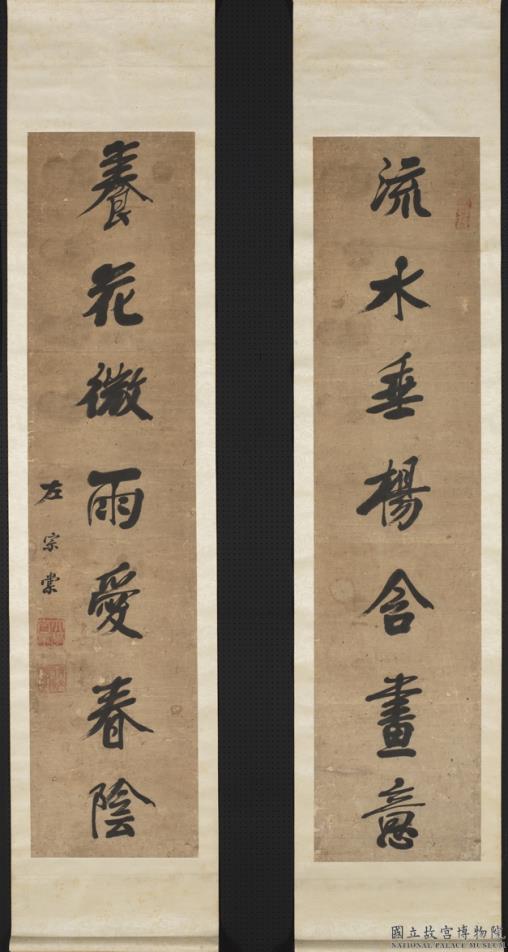 流水垂楊合畫意
養花微雨愛春陰
左宗棠
國立故宮博物院
NATIONAL PALACE MUSEUM